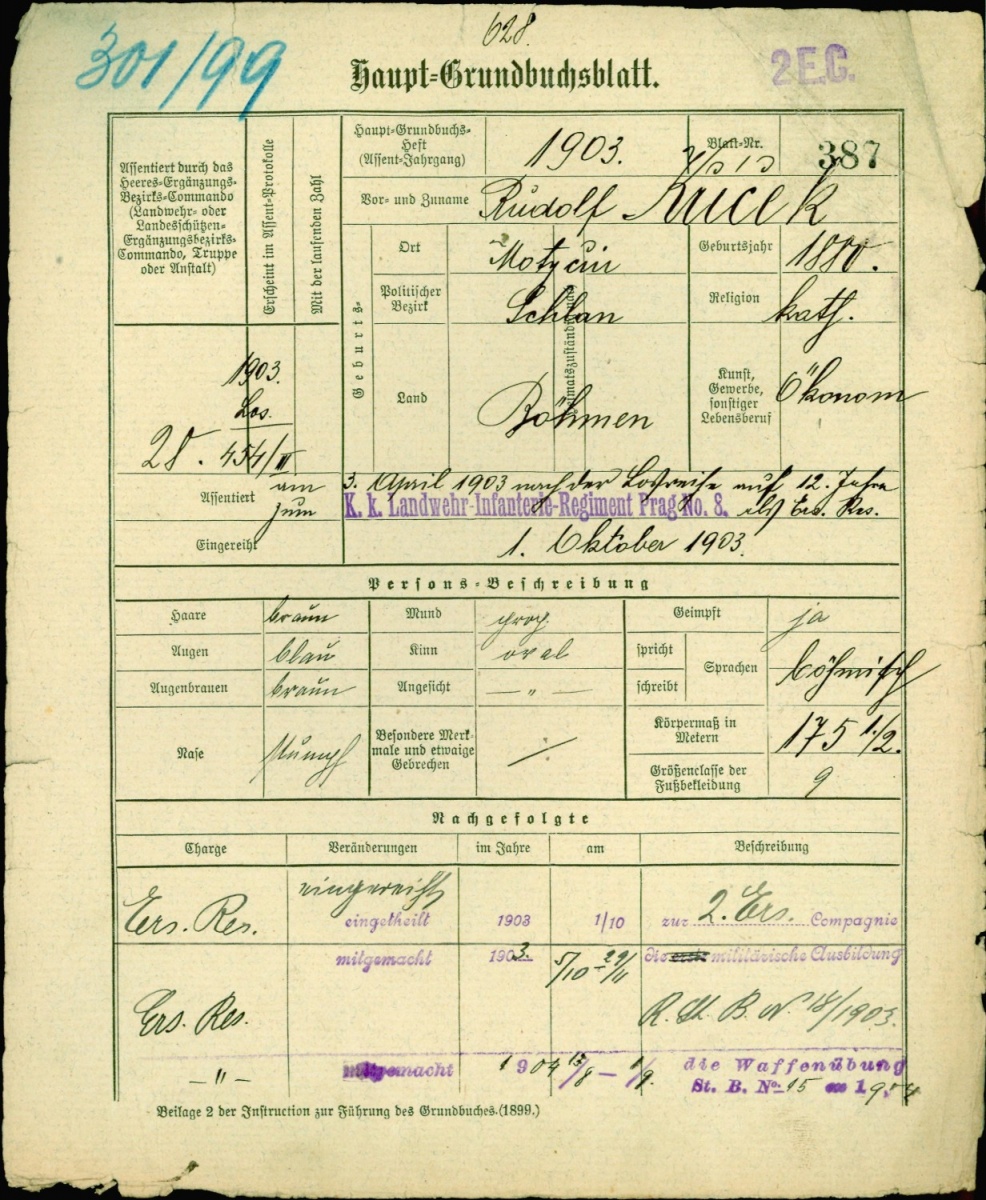 628.
301/99
Haupt-Grundbuchsblatt.
2 E.C.
Assentiert durch das
Heeres-Ergänzungs-
Bezirks-Commando
(Landwehr- oder
Landesschützen-
Ergänzungsbezirks-
Commando, Truppe
oder Anstalt)
Erscheint im Assent-Protokolle
Mit der laufenden Zahl
Haupt-Grundbuchs-
Heft
(Assent-Jahrgang)
1903.
Blatt-Nr.
387
Vor- und Zuname
Rudolf Kuček
Geburts-
Ort
Motyčin
Geburtsjahr
1880.
Politischer
Bezirk
Schlan
Religion
kath.
Land
Böhmen
Kunst,
Gewerbe,
sonstiger
Lebensberuf
Ökonom
1903.
Los.
28. 454/III
Assentiert
am
3. April 1903 nach der Losreihe auf 12. Jahre
zum
K. k. Landwehr-Infanterie-Regiment Prag No. 8. als Ers. Res.
Eingereiht
1. Oktober 1903.
Persons-Beschreibung
Haare
braun
Mund
prop.
Geimpft
ja
Augen
blau
Kinn
oval
spricht
schreibt
Sprachen
böhmisch
Augenbrauen
braun
Angesicht
— " —
Nase
stumpf
Besondere Merk-
male und etwaige
Gebrechen
/
Körpermaß in
Metern
175 1/2.
Größenclasse der
Fußbekleidung
9
Nachgefolgte
Charge
Veränderungen
im Jahre
am
Beschreibung
eingereiht
Ers. Res. eingetheilt 1903 1/10 zur 2. Ers. Compagnie
mitgemacht 1903. 5/10 - 29/11 die erste militärische Ausbildung
Ers. Res.
18/1903.
— " — mitgemacht 1904 13/8 — 1/9. die Waffenübung
St. B. No. 15 1904
Beilage 2 der Instruction zur Führung des Grundbuches. (1899.)